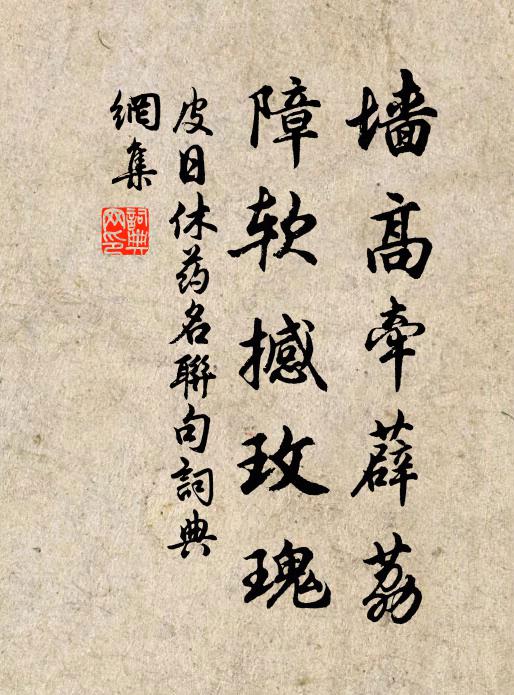 墙高牵薜荔
障软撼玫瑰
皮日休药名聯句詞典
網集
詞典網印